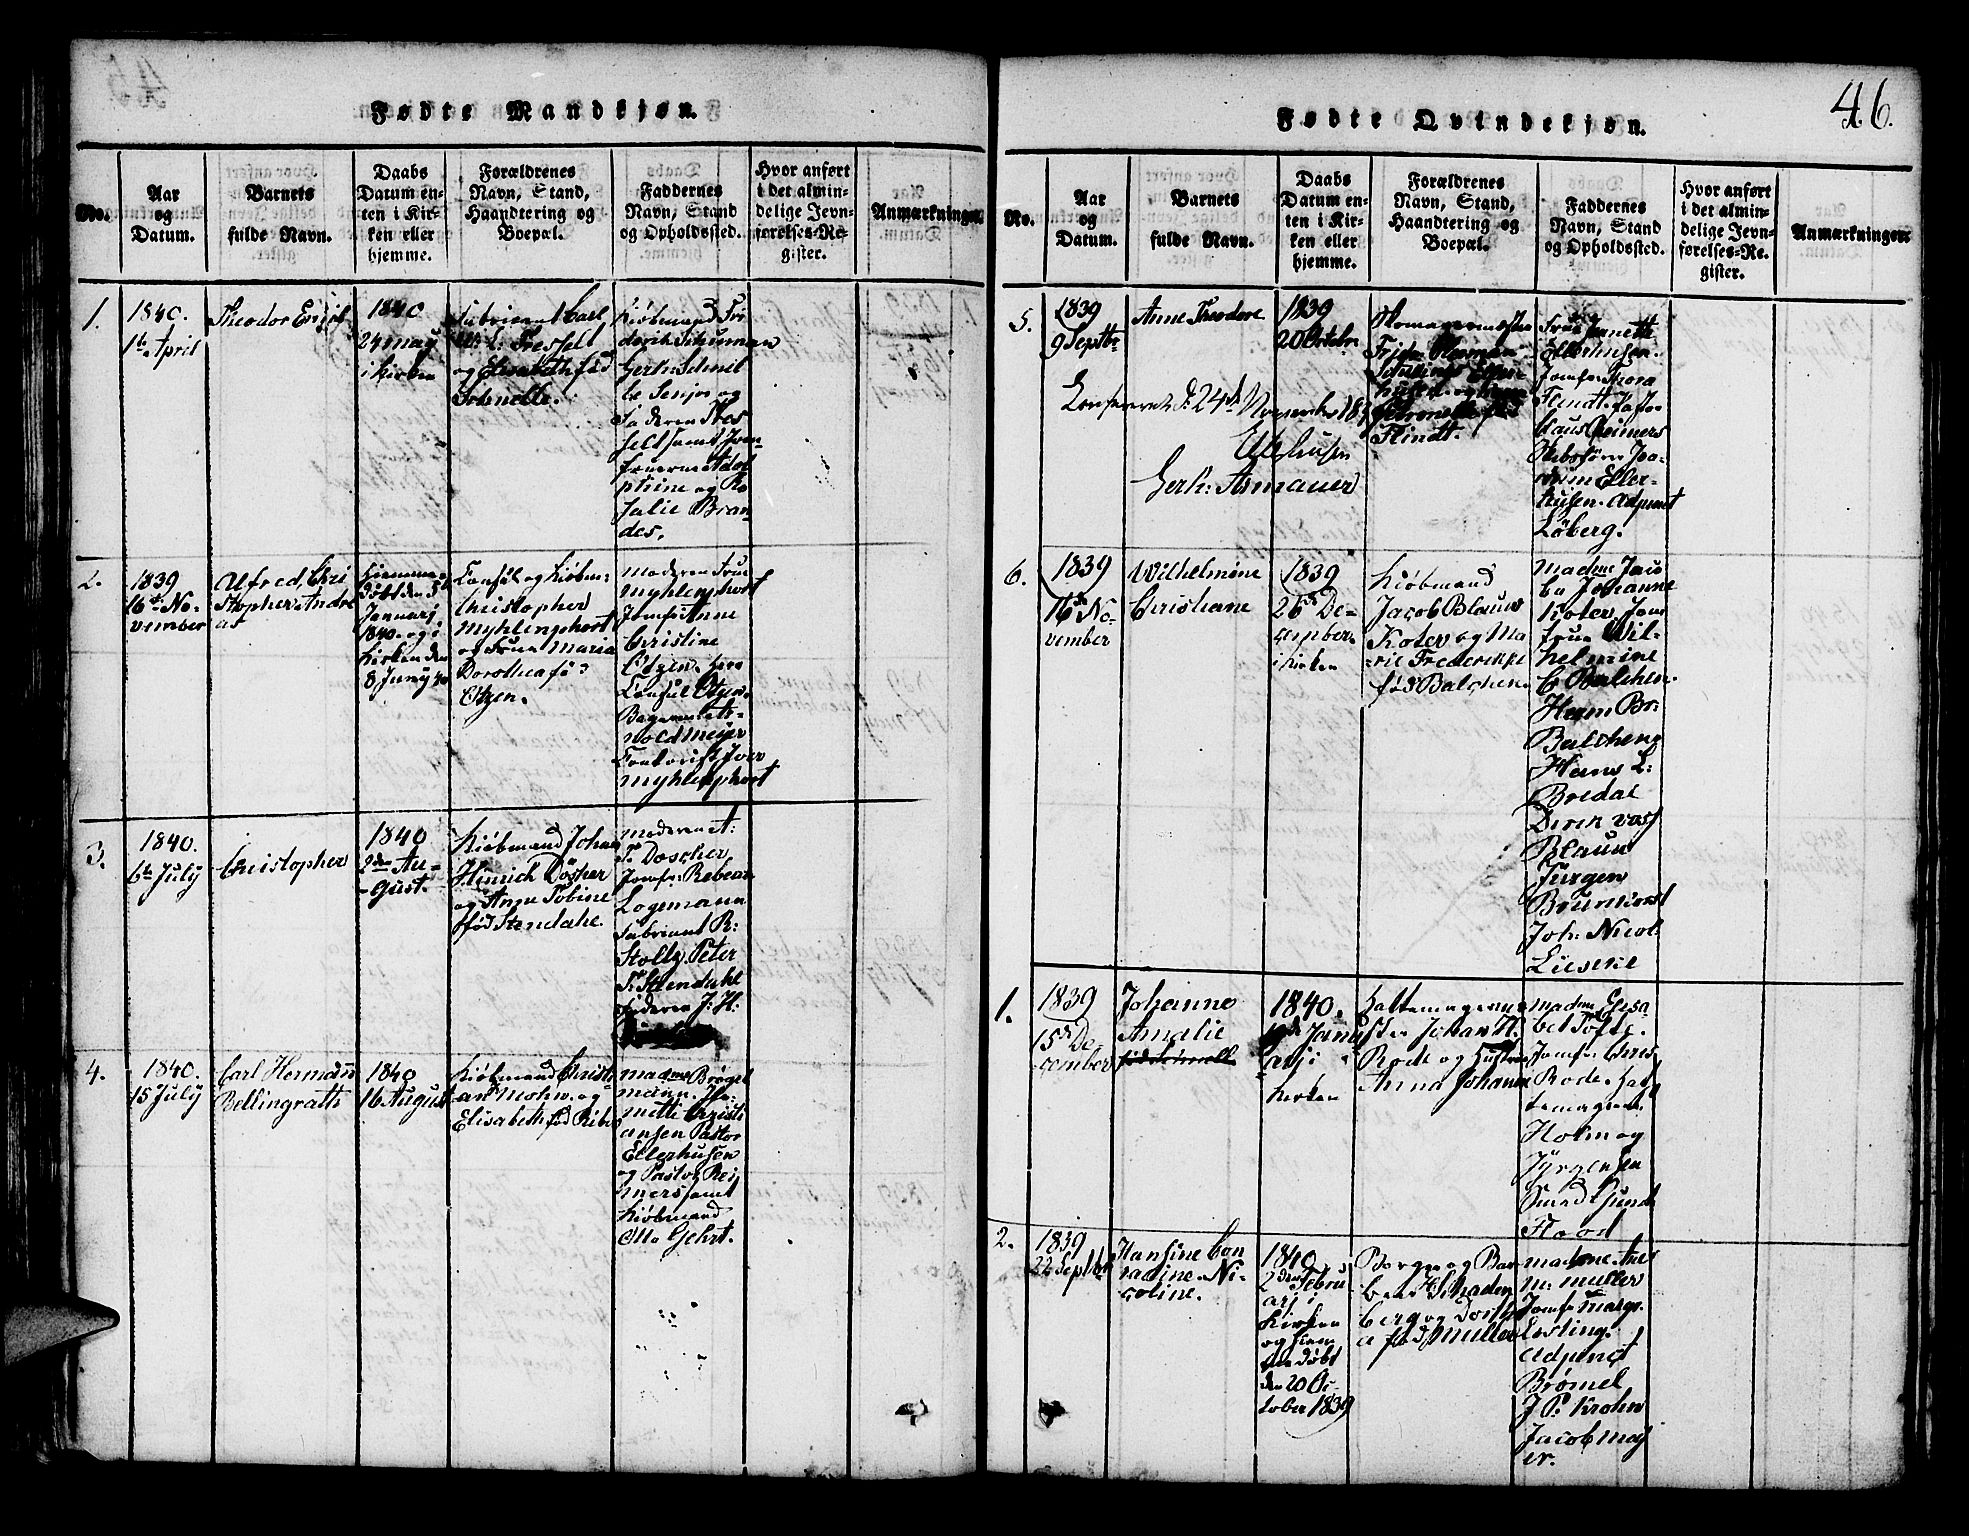 46.
Fødte Mandkjøn.
No.
Aar
og
Datum.
Barnets
fulde Navn.
Daabs
Datum en-
ten i Kir-
ken eller
hjemme.
Forældrenes
Navn, Stand,
Haandtering og
Boepæl.
Faddernes
Navn, Stand
og Opholdssted.
Hvor anført
i det almin-
delige Jevn-
førelses-Re-
gister.
Anmærkninger.
1.
1840.
1te April
Theodor
1840
24 may
i Kirken
Fabriceur Carl
og Elisabeth fød
Schnelle.
Kiøbmand Fri
derich Schuman
Gerh: Schnel
le Senior og
Faderen
feldt samt Jom
fruerne Adol
phine og Ro
salie Bran
des.
2.
1839
16de No-
vember
Alfred Chri
stopher Andre
as
Hiemme
døbt den 5te
Januarj
1840. og i
Kirken den
8 Juny 40
Consul og Kiøbm:
Christopher
Myhlenphort
og Frue Maria
Dorothea fød
Otzen.
Moderen Frue
Myhlenphort
Jomfr: Anne
Christine
Otzen. Herr
Consul Otzen.
Bageren Ar-
nold Meyer
Contorist Iver
Myhlenphort
3.
1840.
6te July
Christopher
1840
2den Au-
gust.
Kiøbmand Johan
Hinrich Döscher
og Anne Tobine
fød Stendahl.
Moderen A:
T: Doscher
Jomfr: Rebeca
Logemann
Fabriceur R:
Stoltz. Peter
T: Stendahl
Faderen J: H:
4.
1840.
15 July
Carl Hermann
Bellingrath
1840
16 August
Kiøbmand Christi
an Mohn og
Elisabeth fød Riber
Madme Brögel
mann. Ja-
mitte Christi
ansen Pastor
Ellerhusen
og Pastor Rei
mers samt
Kiøbmand
Otto Gehrt.
Fødte Qvindekjøn.
No.
Aar
og
Datum.
Barnets
fulde Navn.
Daabs
Datum en-
ten i Kir-
ken eller
hjemme.
Forældrenes
Navn, Stand,
Haandtering og
Boepæl.
Faddernes
Navn, Stand
og Opholdssted.
Hvor anført
i det almin-
delige Jevn-
førelses-Re-
gister.
Anmærkninger.
5.
1839
9 Septbr
Anne Theodore
1839
20 October
Skomagermester
Flindt.
Frue Janette
Ellerhusen.
Jomfr: Thora
Flindt. Pastor
Claus Reimers
Joa-
chim Eller-
husen. Adjunct
Løberg.
Confereret d: 24de November
Ellerhusen
Gerh: Armauer
6.
1839
16de No-
vember
Wilhelmine
Christiane
1839
26de De-
cember
i Kirken
Kiøbmand
Jacob Blauw
Koter og Ma
rie Frederikke
fød Balchen.
Madme Jaco
ba Johanne
Koter. Jom
frue Wil-
helmine
C Balchen.
Herm Br:
Balchen
Hans L:
Bredal
Dirck von
Blauw
Jürgen
Brunhorst
Joh: Nicol:
Lieseke
1.
1839
15de De-
cember
Johanne
Amalie
1840.
19de Janu
arj i
Kirken
Hattemagerme
ster Johan H.
Rode og Hustru
Anna Johann
Madme Elisa
bet Tofte.
Jomfr: Chris
Rode. Hat
temagerne
Holm og
Jürgensen
Smed Gunde
Flood
2.
1839
22 Septbr
Hansine Con
radine. Ni-
coline.
1840
2den Febru
arj i
Kirken
og hiem
me døbt
den 20 Oc-
tober 1839
Borger og Bar
beer H Schaden
berg og Dorthe
a fød Muller
Madme Ane
M: Muller
Jomfr Margr.
Esting.
Adjunct
Brömel
J P: Krohn
Jacob May
er.